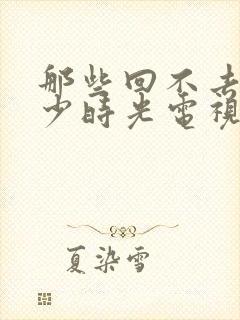 那些回不去
少時光電視
夏染雪